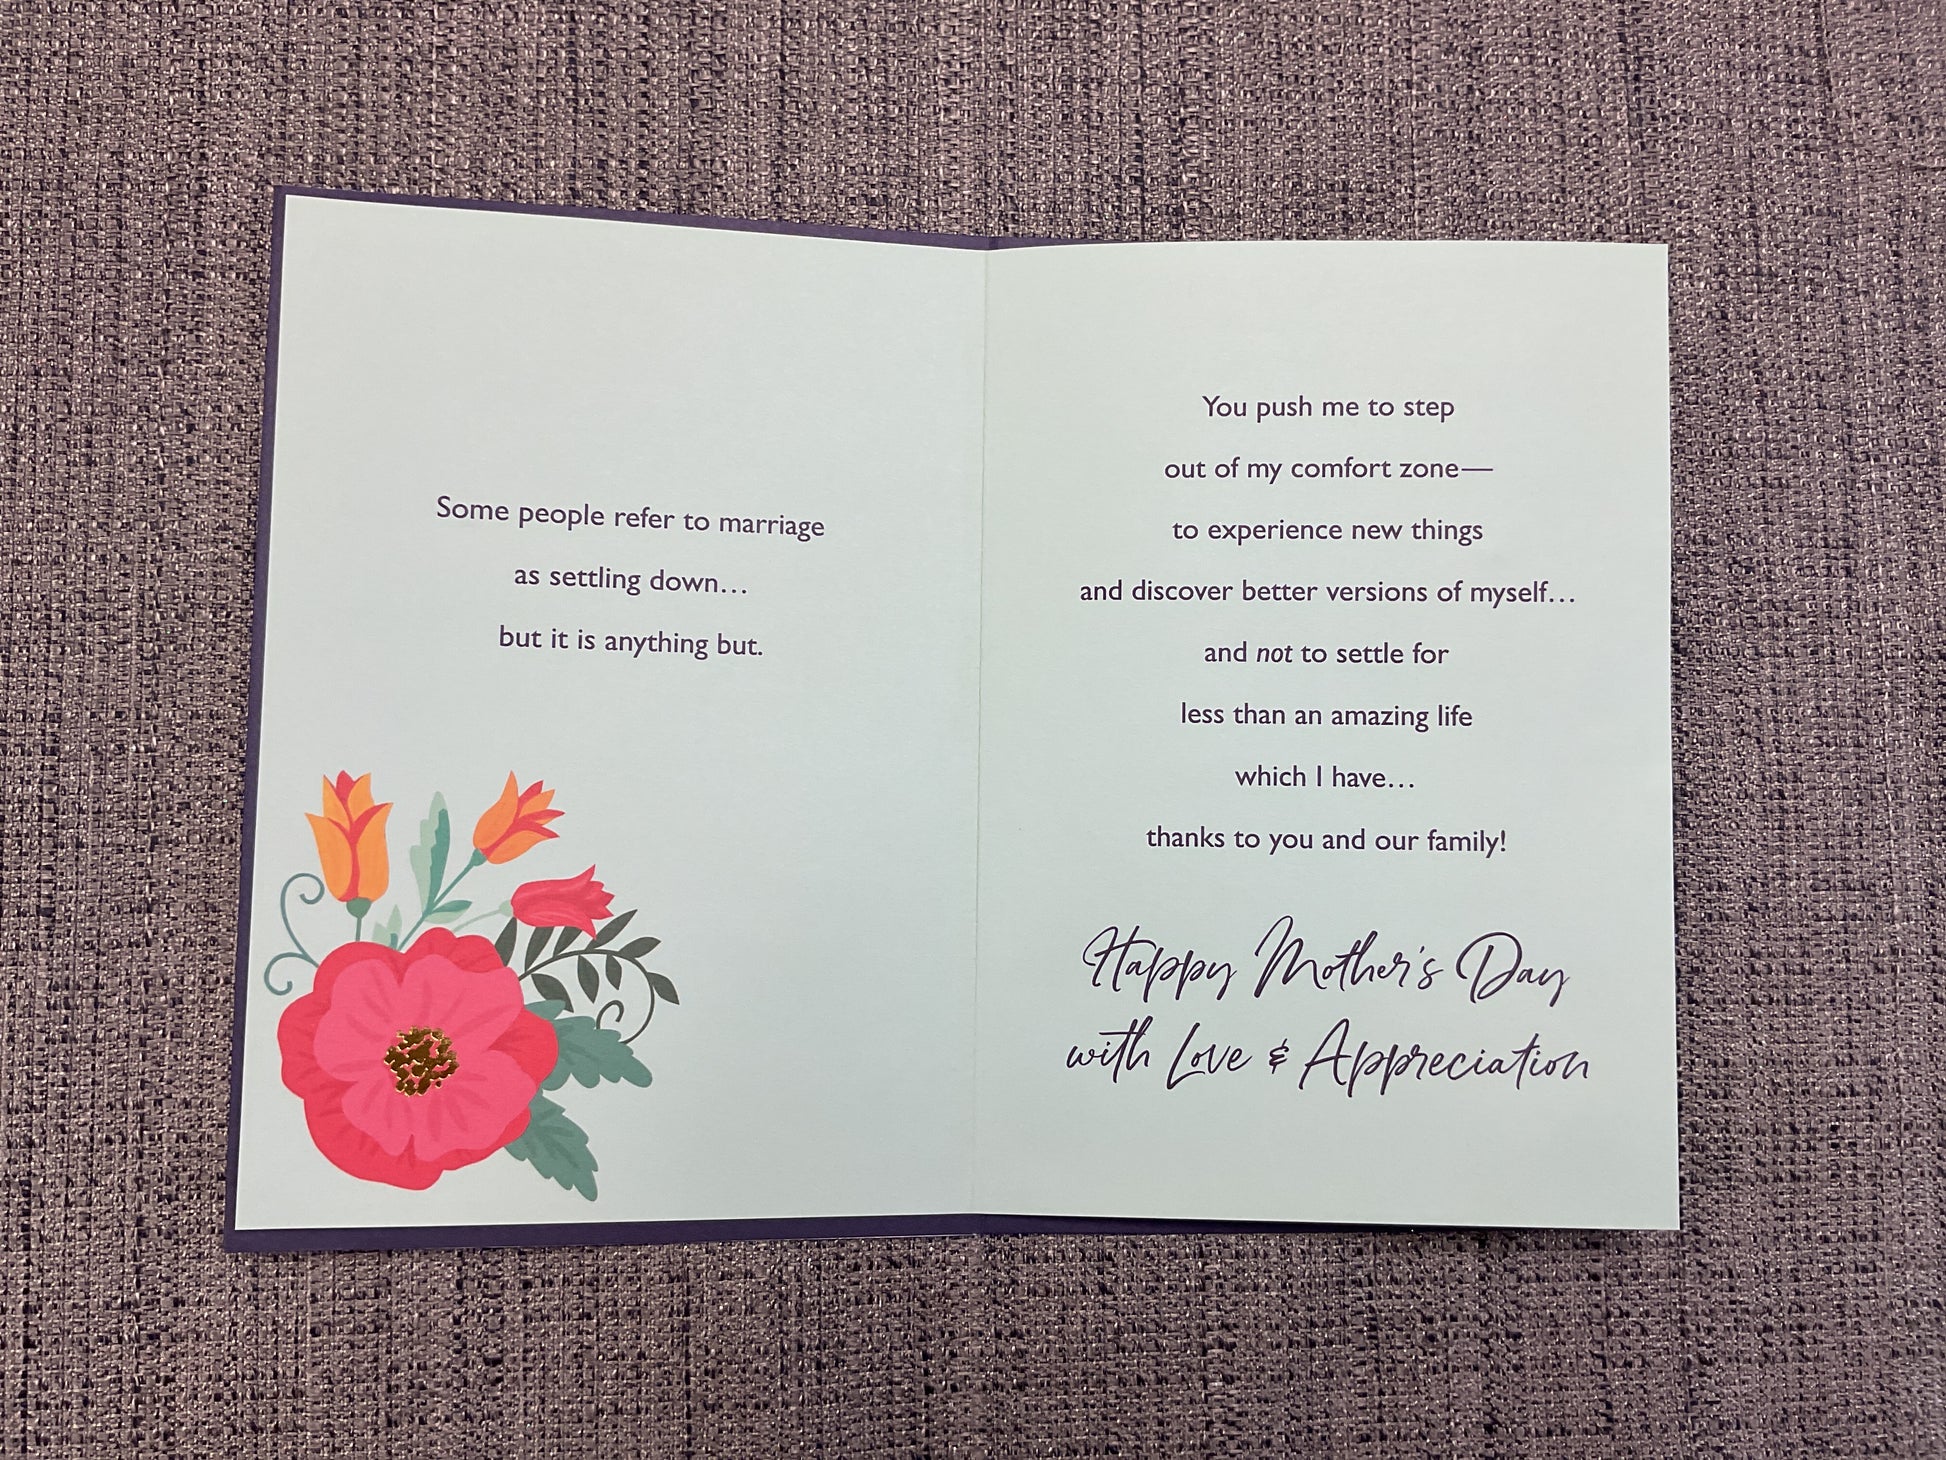 Some people refer to marriage
as settling down...
but it is anything but.
You push me to step
out of my comfort zone—
to experience new things
and discover better versions of myself...
and not to settle for
less than an amazing life
which I have...
thanks to you and our family!
Happy Mother's Day
with Love & Appreciation